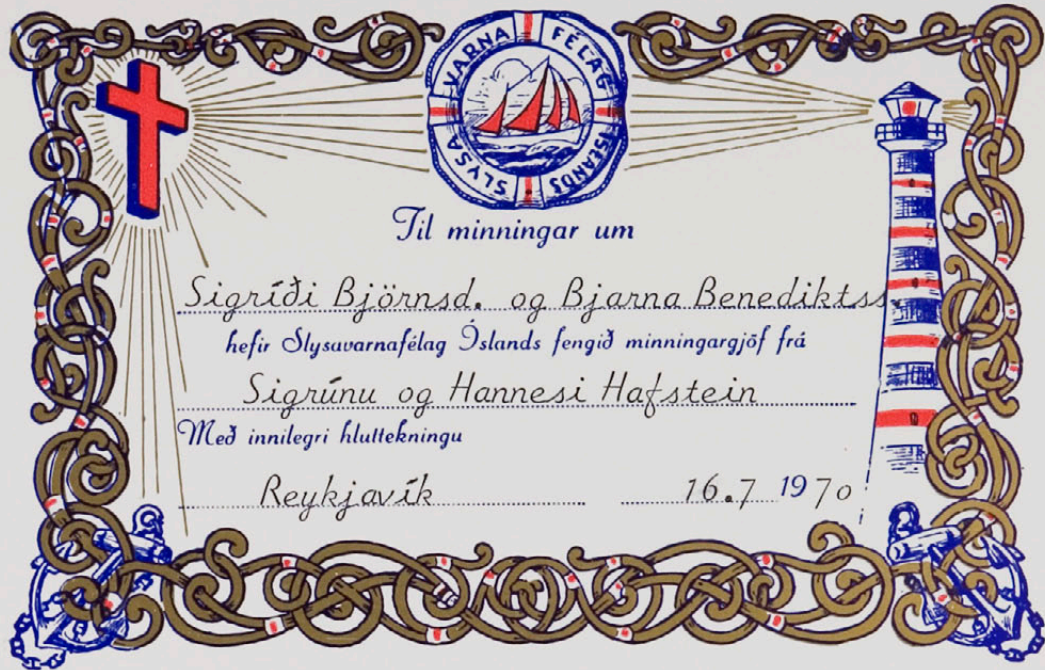 SLYSAVARNA FÉLAG ÍSLANDS
Til minningar um
Sigríði Björnsd. og Bjarna Benediktss.
hefir Slysavarnafélag Íslands fengið minningargjöf frá
Sigrúnu og Hannesi Hafstein
Með innilegri hluttekningu
Reykjavík 16.7 1970